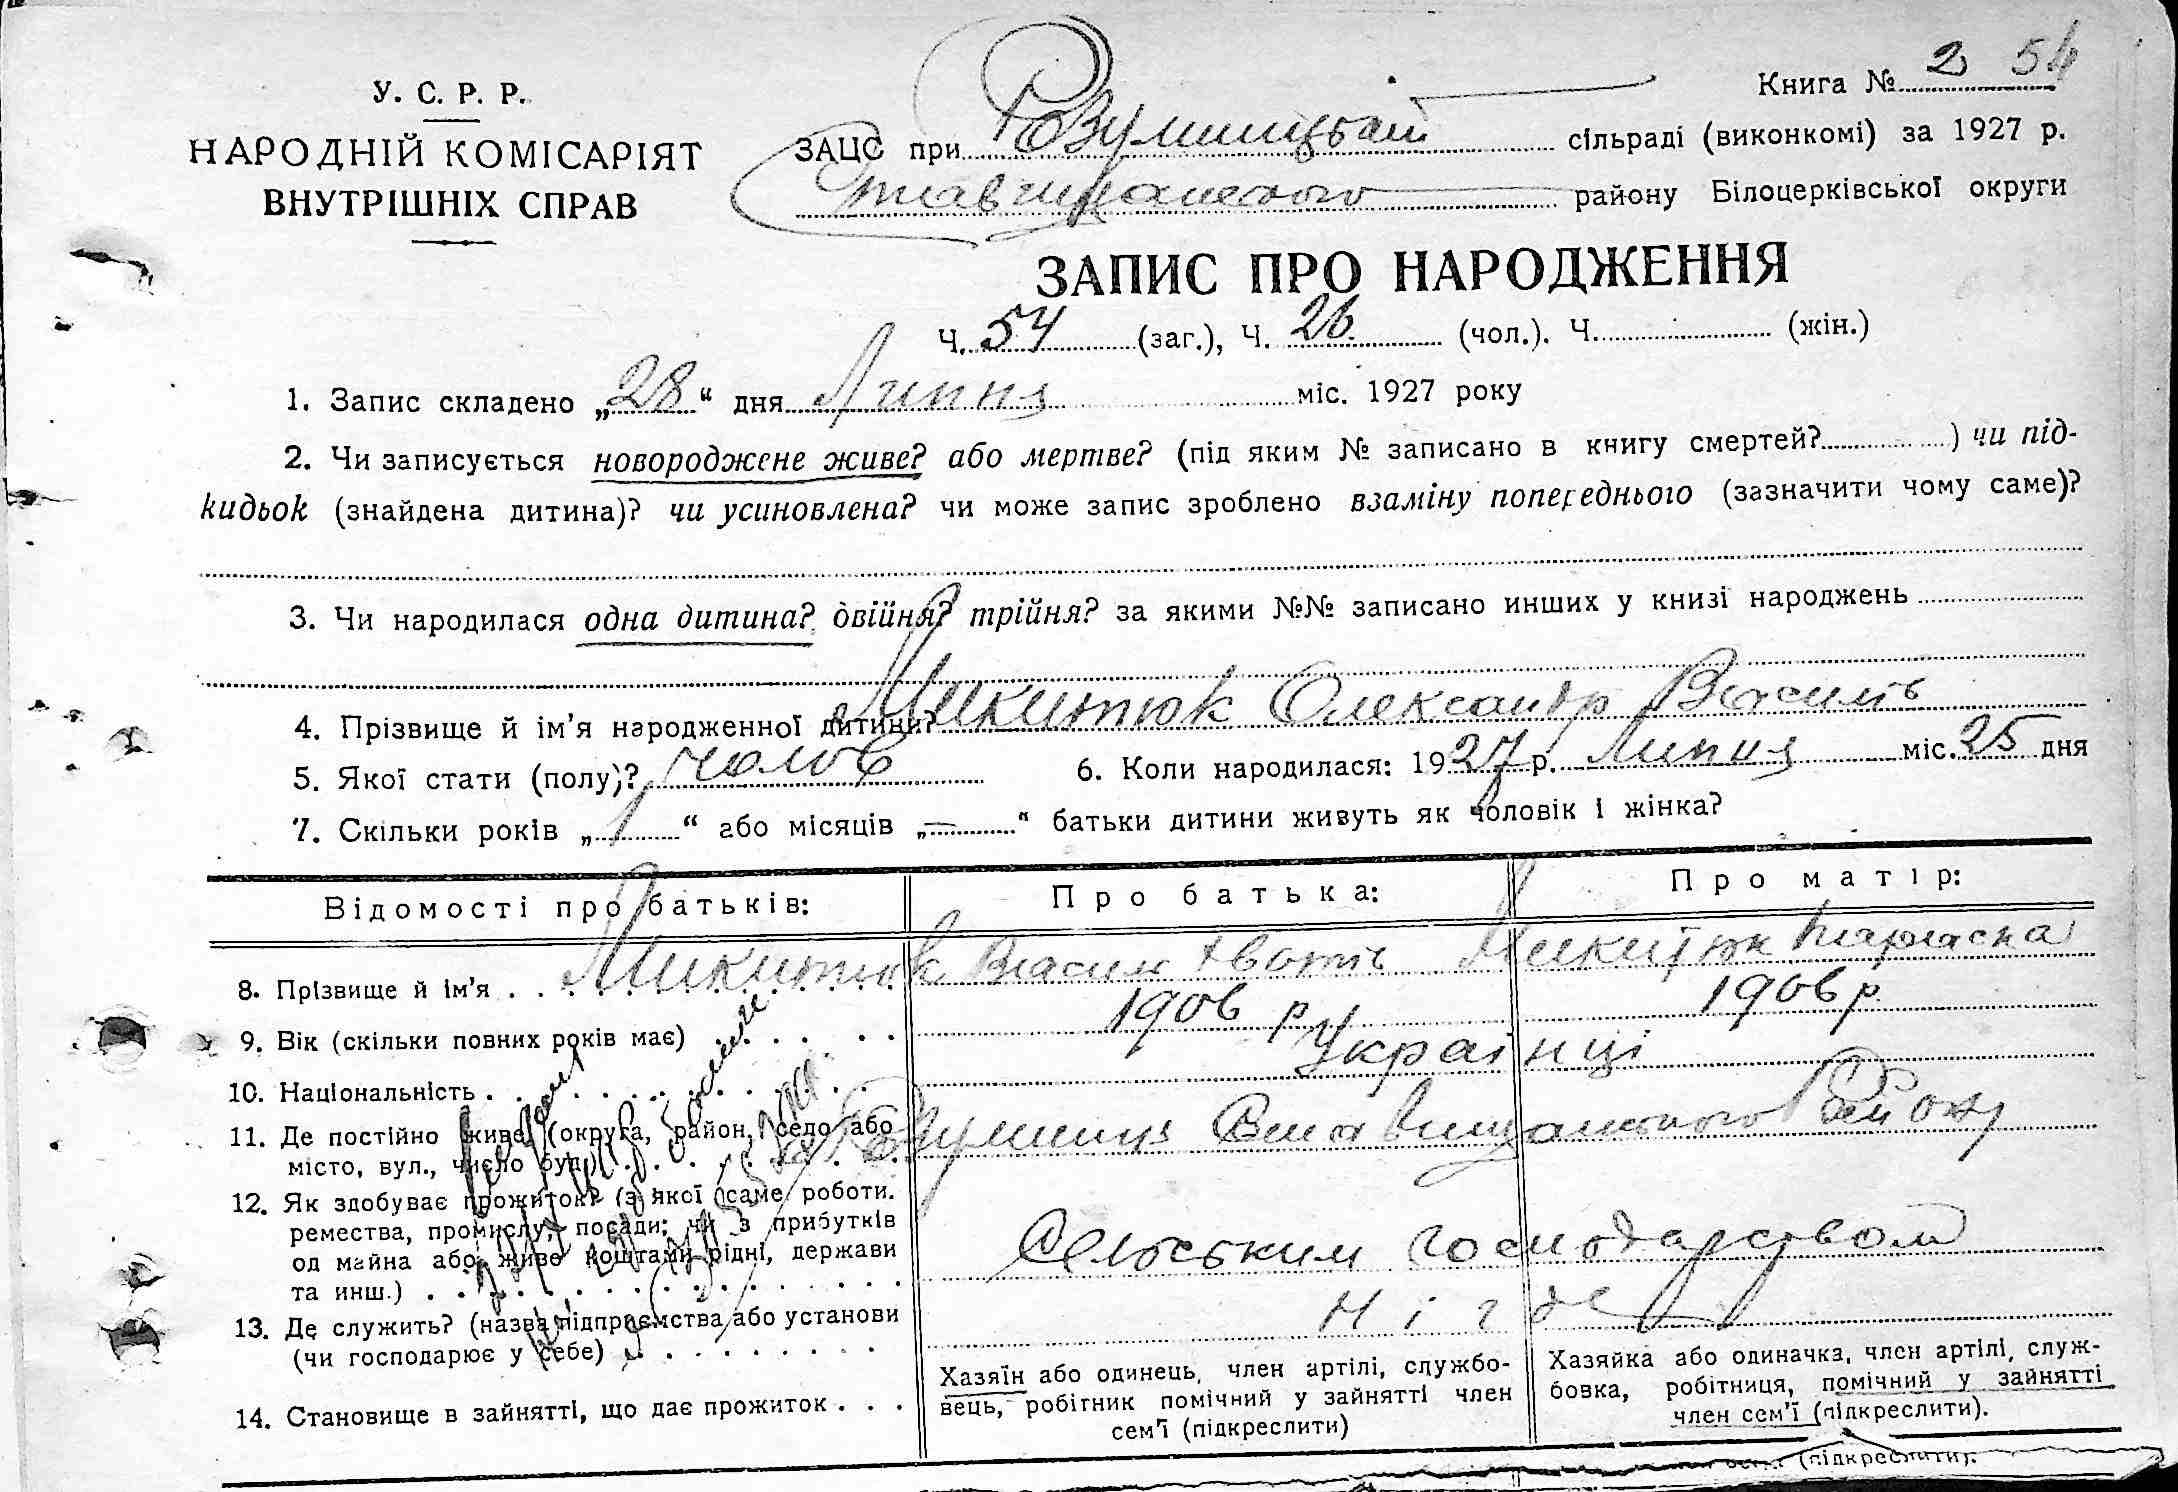 У. С. Р. Р.
НАРОДНІЙ КОМІСАРІЯТ
ВНУТРІШНІХ СПРАВ
Книга № 2 54
ЗАЦС при Розумницькій сільраді (виконкомі) за 1927 р.
Ставищанського району Білоцерківської округи
ЗАПИС ПРО НАРОДЖЕННЯ
Ч. 54 (заг.), Ч. 26 (чол.). Ч. (жін.)
1. Запис складено „28“ дня Липня міс. 1927 року
2. Чи записується новороджене живе? або мертве? (під яким № записано в книгу смертей? ) чи під-
кидьок (знайдена дитина)? чи усиновлена? чи може запис зроблено взаміну попереднього (зазначити чому саме)?
3. Чи народилася одна дитина? двійня? трійня? за якими №№ записано инших у книзі народжень
4. Прізвище й ім’я народженної дитини? Микитюк Олександр Василь
5. Якої стати (полу)? чолов 6. Коли народилася: 1927 р. Липня міс. 25 дня
7. Скільки років „1“ або місяців „—“ батьки дитини живуть як чоловік і жінка?
Відомості про батьків: Про батька: Про матір:
8. Прізвище й ім’я Микитюк Василь Микитюк
9. Вік (скільки повних років має) 1906 р 1906 р.
10. Національність Українці
11. Де постійно живе (округа, район, село або
місто, вул., число буд.) Розумниця Ставищанського Району
12. Як здобуває прожиток? (з якої саме роботи.
ремества, промислу, посади; чи з прибутків
од майна або живе коштами рідні, держави
та инш.) Сельським господарством
13. Де служить? (назва підприємства або установи
(чи господарює у себе) Нігде
14. Становище в зайнятті, що дає прожиток
Хазяїн або одинець, член артілі, службо-
вець, робітник помічний у зайнятті член
сем’ї (підкреслити)
Хазяйка або одиначка, член артілі, служ-
бовка, робітниця, помічний у зайнятті
член сем’ї (підкреслити).
(підкреслити).